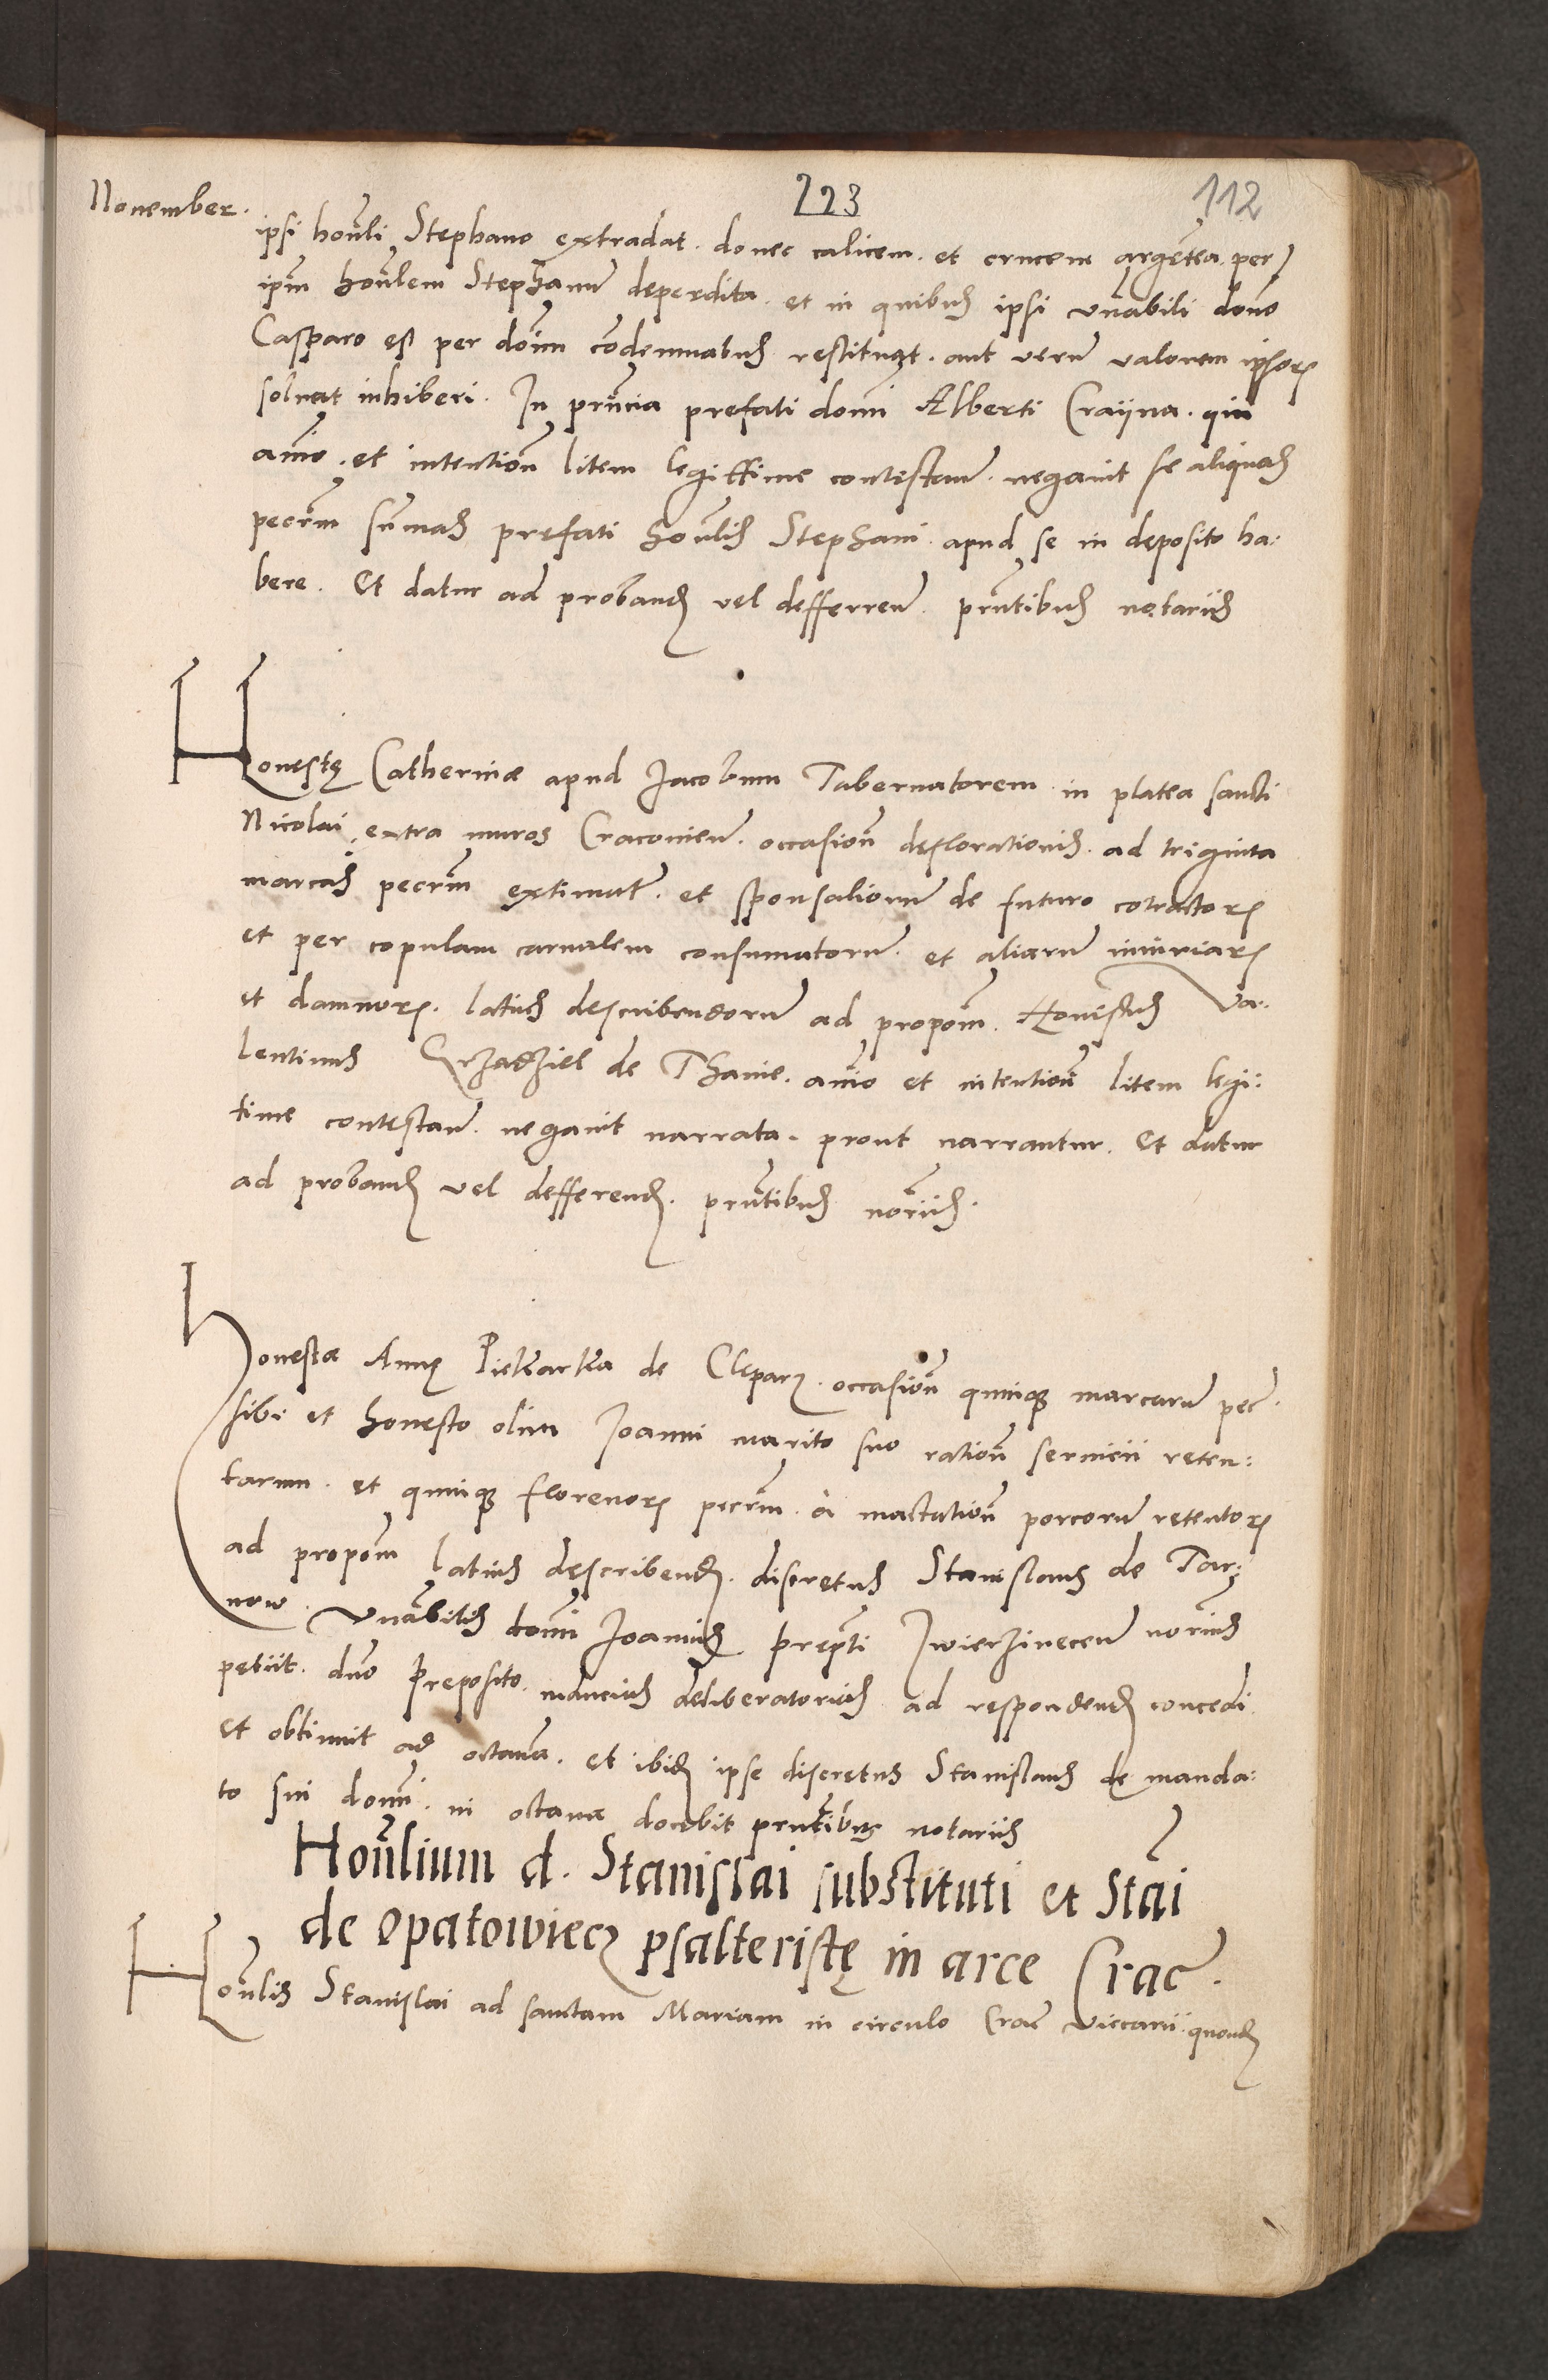 November.
223
112
ipsi honli Stephano extradat. donec calicem. et crucem argentea. per
ipm honlem Stephanu deperdita. et in quibus ipsi vnabili dono
Casparo est per doim condemnatus restituat. aut veru valorem ipsor
soluat inhiberi. In pruncia prefati domi Alberti Crayna. qui
animo. et intention litem legittime contestam. negauit se aliquas
pecrm summas prefati honlis Stephani. apud se in deposito ha:
bere. Et datur ad proband vel defferren. prntibus notariis
Honestę Catherinæ apud Jacobum Tabernatorem in platea sancti
Nicolai extra muros Cracouien. occasion deflorationis. ad triginta
marcas pecrm extimat. et sponsalioru de futuro cotractor
et per copulam carnalem consumatoru. et aliaru iniuriar
et damnor. latius describendoru ad propom. Honestus Va:
lentinus de Thanie. animo et intention litem legi:
time contestan. negauit narrata. prout narrantur. Et datur
ad proband vel defferend. prntibus noriis.
Honestæ Annę Piekarka de Clepar. occasion quinque marcaru pec.
sibi et honesto olim Joanni marito suo ration seruicii reten:
tarum. et quinque florenor pecrm. à mactation porcoru retentor
ad propom latius describend. discretus Stanislaus de Tar:
now. Vnabilis domi Joannis prepti Zwierzinecen norius
petiit. dno Preposito. inducias deliberatorias ad respondend concedi
et obtinuit ad octaua. et ibid ipse discretus Stanislaus de manda:
to sui domi. in octaua docebit prntibus notariis
Honlium d. Stanislai substituti et Stai
de Opatowiecz psalteristę in arce Crac.
Honlis Stanislai ad sanctam Mariam in circulo Crac viccarii quond